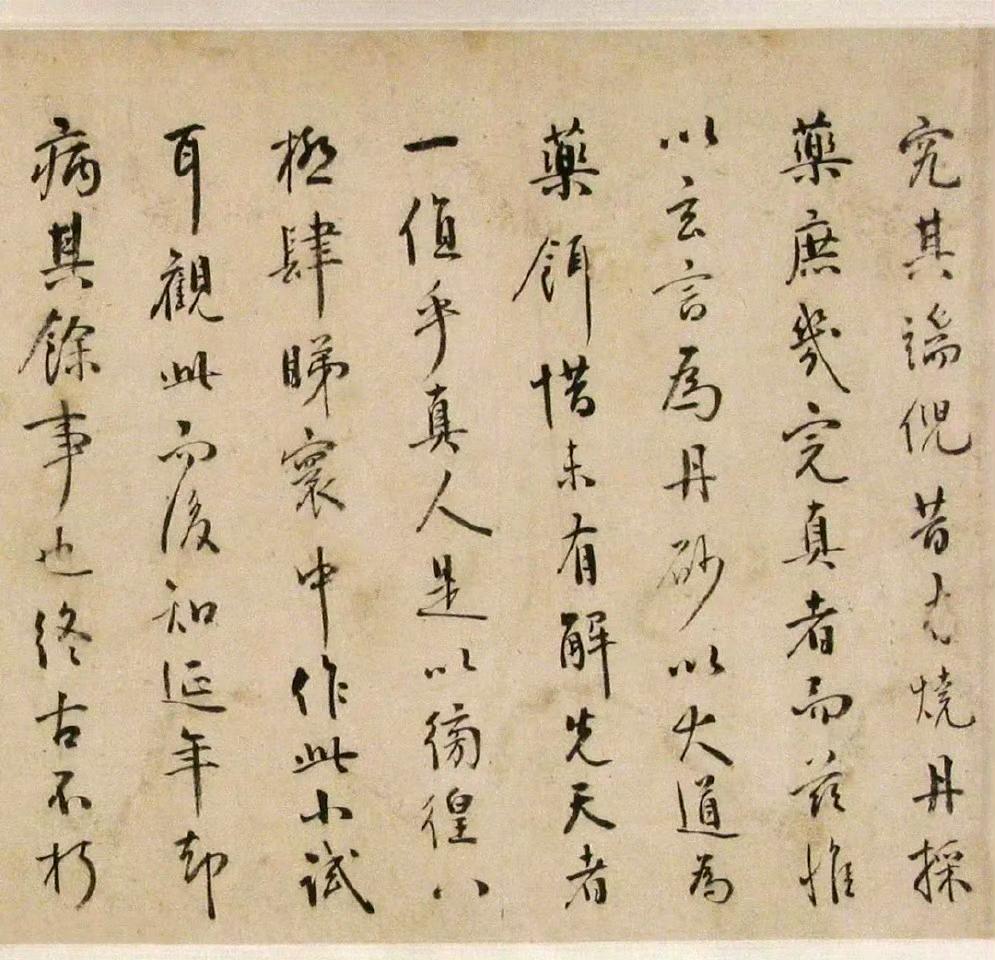 究其端倪昔尤燒丹採
藥庶幾完真者而茲惟
以玄言為丹砂以大道為
藥餌惜未有解先天者
一值乎真人是以徬徨八
極肆睇寰中作此小試
耳觀此而後知延年却
病其餘事也終古不朽